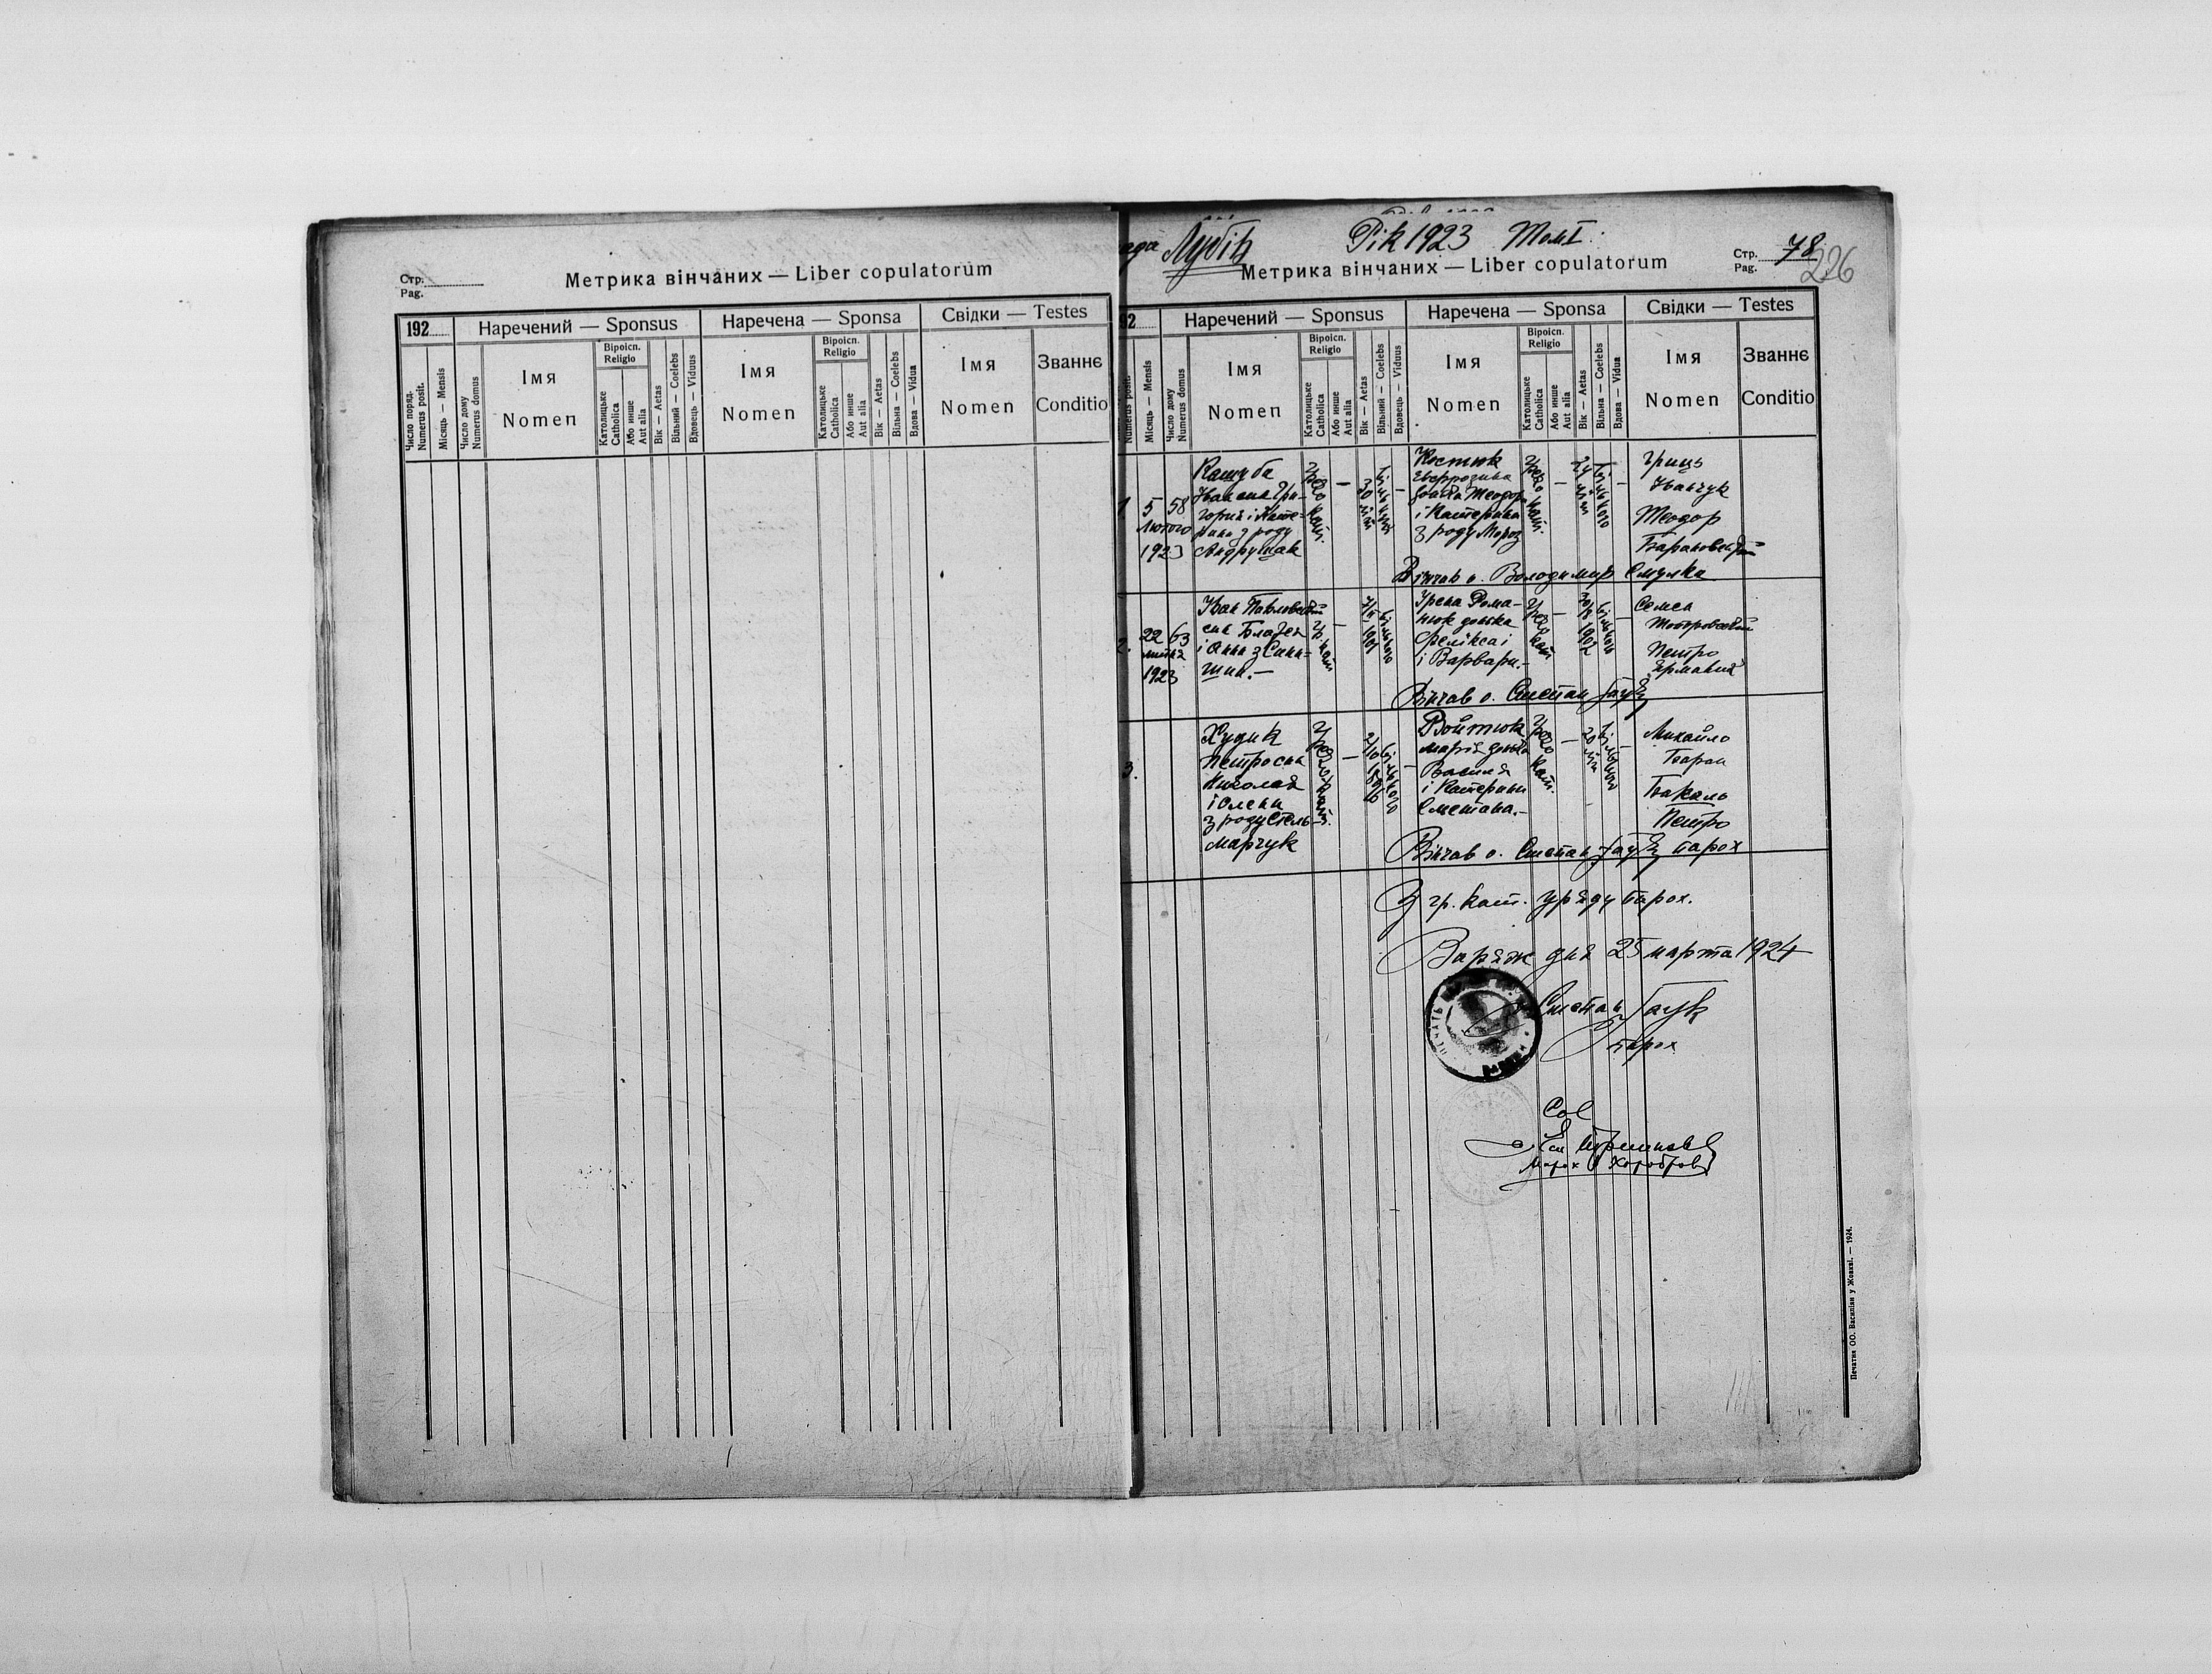 Стр.
Pag.
Метрика вінчаних — Liber copulatorum
192
Наречений — Sponsus
Наречена — Sponsa
Свідки — Testes
Число поряд.
Numerus posit.
Місяць — Mensis
Число дому
Numerus domus
Імя
Nomen
Віроісп.
Religio
Католицьке
Catholica
Або инше
Aut alia
Вік — Aetas
Вільний — Coelebs
Вдовець — Viduus
Імя
Nomen
Віроісп.
Religio
Католицьке
Catholica
Або инше
Aut alia
Вік — Aetas
Вільна — Coelebs
Вдова — Vidua
Імя
Nomen
Званнє
Conditio
Лубів
Рік 1923 Том I.
Стр.
Pag.
78
226
Метрика вінчаних — Liber copulatorum
92
Наречений — Sponsus
Наречена — Sponsa
Свідки — Testes
Numerus posit.
Місяць — Mensis
Число дому
Numerus domus
Імя
Nomen
Віроісп.
Religio
Католицьке
Catholica
Або инше
Aut alia
Вік — Aetas
Вільний — Coelebs
Вдовець — Viduus
Імя
Nomen
Віроісп.
Religio
Католицьке
Catholica
Або инше
Aut alia
Вік — Aetas
Вільна — Coelebs
Вдова — Vidua
Імя
Nomen
Званнє
Conditio
1.
5
Лютого
1923
58
Кашуба
Іван син Гри-
гория і Кате-
рини з роду
Андрущак
Греко кат.
—
30 літ
вільний
—
Костюк
донька Теодора
і Катерини
з роду Мороз
Греко кат.
—
24 літ
вільного
—
Гриць
Іванчук
Теодор
Барановский
Вінчав о. Володимир Смулка
2.
22
липня
1923
63
Іван Павловский
син Блажея
і Анни з
Гр. кат
—
1901
вільного
Ірена Рома-
нюк донька
Фелікса і
і Варвари.—
Греко кат
—
1902
вільного
Семен
Петро
Вінчав о. Степан
3.
Худик
Петро син
Николая
і Олени
з роду Стель-
марчук
Греко кат.
—
2/10 1896
вільного
—
Войтюк
Марія донька
Василя
і Катерини
Сметана.—
Греко кат.
—
20 літ
вільного
—
Михайло
Баран
Бакаль
Петро
Вінчав о. Степан парох
З гр. кат. уряду парох.
Варяж дня 25 марта 1924
Степан
парох
ПЕЧАТЬ
Печатня ОО. Василіян у Жовкві. — 1924.